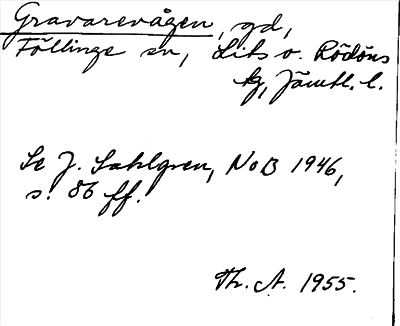 Gravarevågen, gd,
Föllinge sn, Lits o. Rödöns
tg, Jämtl. l.
Se J. Sahlgren, NoB 1946,
s. 86 ff.
Th. A. 1955.